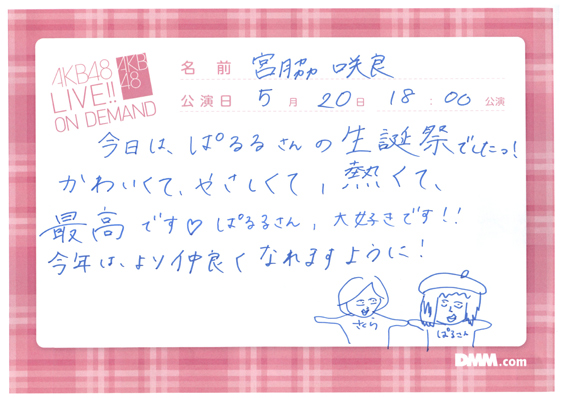 AKB48
LIVE!!
ON DEMAND
AKB
48
名前 宮脇咲良
公演日 5月20日 18:00 公演
今日は、ぱるるさんの生誕祭でしたっ!
かわいくて、やさしくて、熱くて、
最高です♡ ぱるるさん、大好きです!!
今年は、より仲良くなれますように!
さくら
ぱるさん
DMM.com